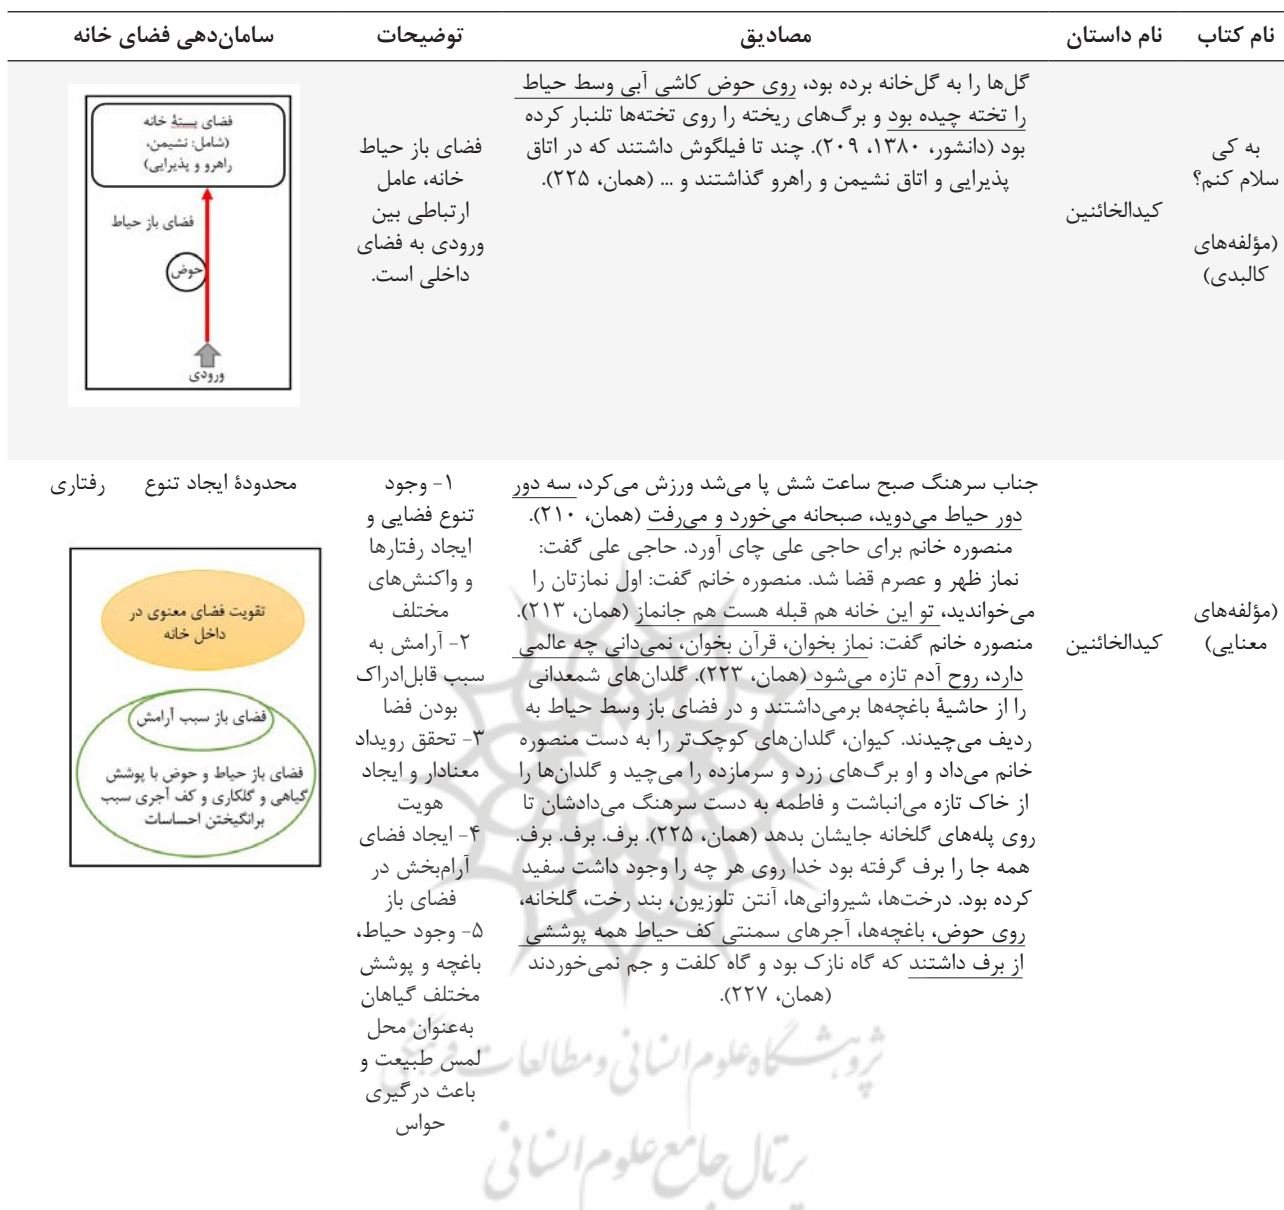 نام کتاب
نام داستان
مصادیق
توضیحات
سامان‌دهی فضای خانه
به کی
سلام کنم؟
(مؤلفه‌های
کالبدی)
کیدالخائنین
گل‌ها را به گل‌خانه برده بود، روی حوض کاشی آبی وسط حیاط
را تخته چیده بود و برگ‌های ریخته را روی تخته‌ها تلنبار کرده
بود (دانشور، ۱۳۸۰، ۲۰۹). چند تا فیلگوش داشتند که در اتاق
پذیرایی و اتاق نشیمن و راهرو گذاشتند و ... (همان، ۲۲۵).
فضای باز حیاط
خانه، عامل
ارتباطی بین
ورودی به فضای
داخلی است.
فضای بستۀ خانه
(شامل: نشیمن،
راهرو و پذیرایی)
فضای باز حیاط
حوض
ورودی
(مؤلفه‌های
معنایی)
کیدالخائنین
جناب سرهنگ صبح ساعت شش پا می‌شد ورزش می‌کرد، سه دور
دور حیاط می‌دوید، صبحانه می‌خورد و می‌رفت (همان، ۲۱۰).
منصوره خانم برای حاجی علی چای آورد. حاجی علی گفت:
نماز ظهر و عصرم قضا شد. منصوره خانم گفت: اول نمازتان را
می‌خواندید، تو این خانه هم قبله هست هم جانماز (همان، ۲۱۳).
منصوره خانم گفت: نماز بخوان، قرآن بخوان، نمی‌دانی چه عالمی
دارد، روح آدم تازه می‌شود (همان، ۲۲۳). گلدان‌های شمعدانی
را از حاشیۀ باغچه‌ها برمی‌داشتند و در فضای باز وسط حیاط به
ردیف می‌چیدند. کیوان، گلدان‌های کوچک‌تر را به دست منصوره
خانم می‌داد و او برگ‌های زرد و سرمازده را می‌چید و گلدان‌ها را
از خاک تازه می‌انباشت و فاطمه به دست سرهنگ می‌دادشان تا
روی پله‌های گلخانه جایشان بدهد (همان، ۲۲۵). برف. برف. برف.
همه جا را برف گرفته بود خدا روی هر چه را وجود داشت سفید
کرده بود. درخت‌ها، شیروانی‌ها، آنتن تلوزیون، بند رخت، گلخانه،
روی حوض، باغچه‌ها، آجرهای سمنتی کف حیاط همه پوششی
از برف داشتند که گاه نازک بود و گاه کلفت و جم نمی‌خوردند
(همان، ۲۲۷).
۱- وجود
تنوع فضایی و
ایجاد رفتارها
و واکنش‌های
مختلف
۲- آرامش به
سبب قابل‌ادراک
بودن فضا
۳- تحقق رویداد
معنادار و ایجاد
هویت
۴- ایجاد فضای
آرام‌بخش در
فضای باز
۵- وجود حیاط،
باغچه و پوشش
مختلف گیاهان
به‌عنوان محل
لمس طبیعت و
باعث درگیری
حواس
محدودۀ ایجاد تنوع رفتاری
تقویت فضای معنوی در
داخل خانه
فضای باز سبب آرامش
فضای باز حیاط و حوض با پوشش
گیاهی و گلکاری و کف آجری سبب
برانگیختن احساسات
پژوهشگاه علوم انسانی و مطالعات فرهنگی
پرتال جامع علوم انسانی